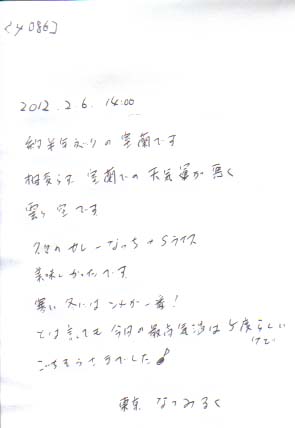 2012.2.6. 14:00
約半年ぶりの室蘭です
相変らず 室蘭での天気運が悪く
曇り空です
久々のカレーなっち+Sライス
美味しかったです
寒い冬にはコレが一番!
とは言っても今日の最高気温は5度らしい
けど
ごちそうさまでした
東京 なつみるく